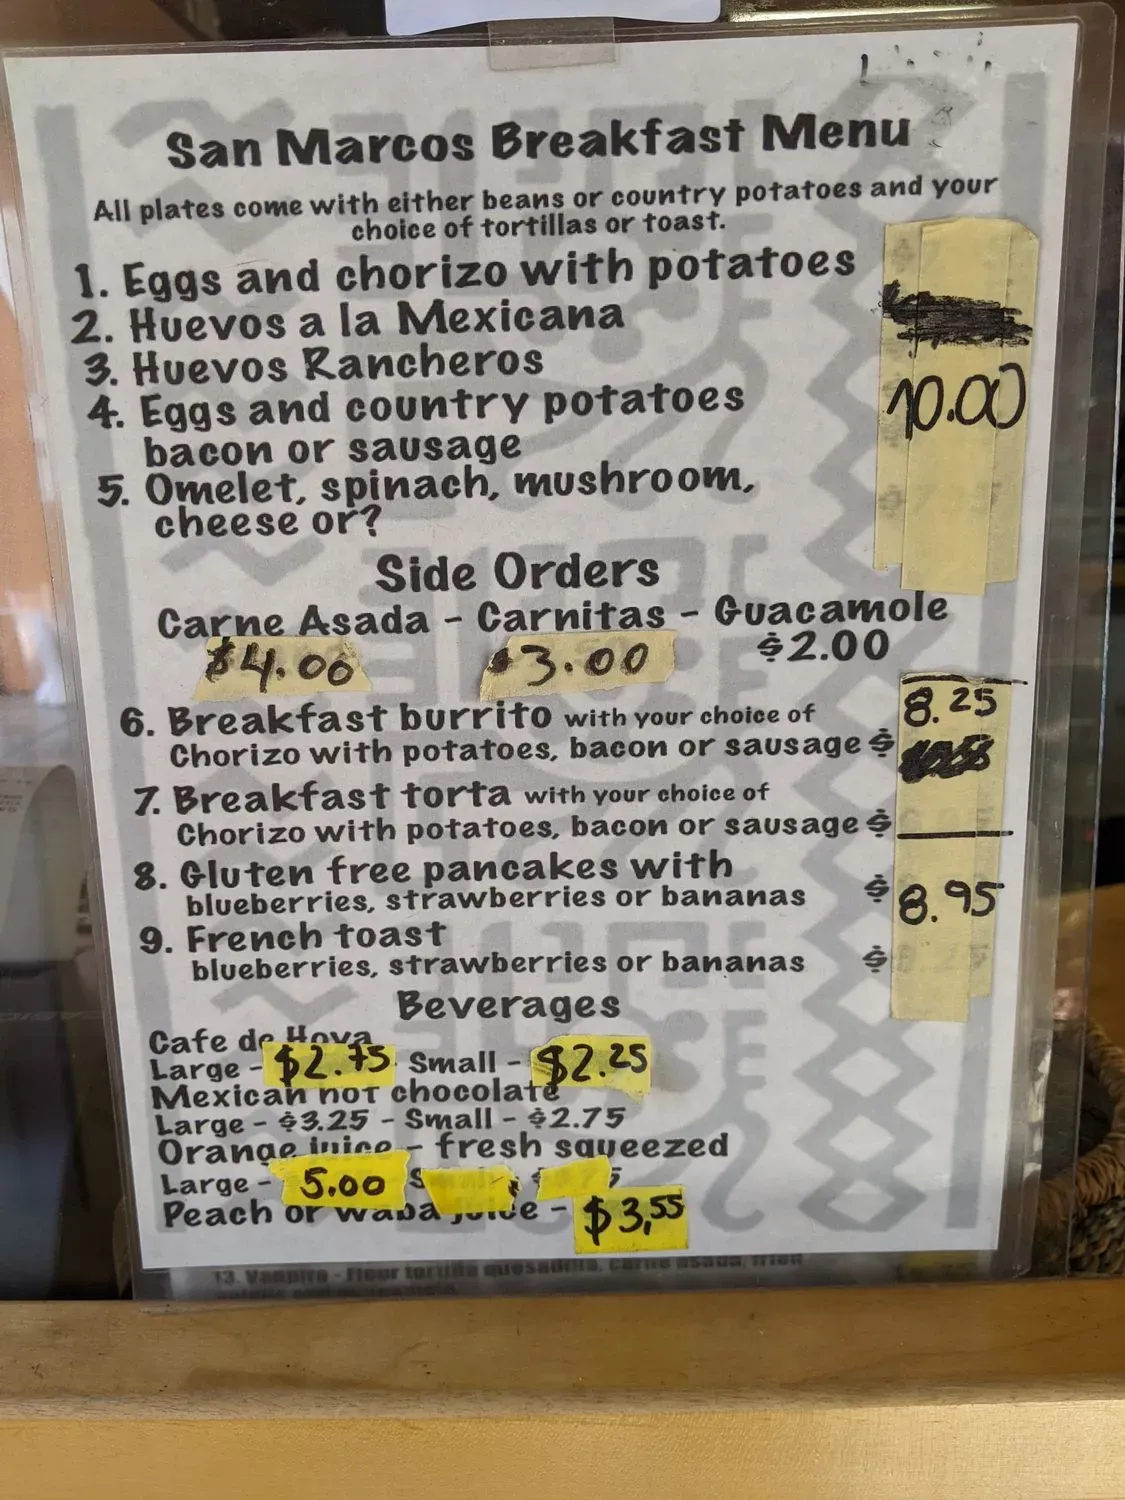 San Marcos Breakfast Menu
All plates come with either beans or country potatoes and your
choice of tortillas or toast.
1. Eggs and chorizo with potatoes
2. Huevos a la Mexicana
3. Huevos Rancheros
10.00
4. Eggs and country potatoes
bacon or sausage
5. Omelet, spinach, mushroom,
cheese or?
Side Orders
Carne Asada - Carnitas - Guacamole
$4.00 $3.00 $2.00
6. Breakfast burrito with your choice of 8.25
Chorizo with potatoes, bacon or sausage $
7. Breakfast torta with your choice of
Chorizo with potatoes, bacon or sausage $
8. Gluten free pancakes with
blueberries, strawberries or bananas $ 8.95
9. French toast
blueberries, strawberries or bananas $
Beverages
Cafe de
Large - $2.75 Small - $2.25
Mexican hot chocolate
Large - $3.25 - Small - $2.75
Orange juice - fresh squeezed
Large - 5.00
Peach or juice - $3,55
13. Vanpiro - Flour tortilla quesadilla, carne asada, fried